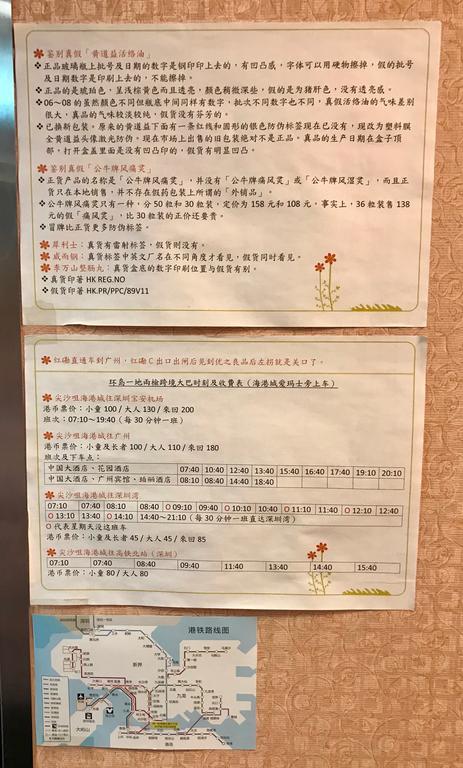 鉴别真假「黄道益活络油」
正品玻璃瓶上批号及日期的数字是钢印印上去的，有凹凸感，字体可以用硬物擦掉，假的批号
及日期数字是印刷上去的，不能擦掉。
正品的是琥珀色，呈浅棕黄色而且透亮，颜色稍微深些，假的是为猪肝色，没有透亮感。
06～08的虽然颜色不同但瓶底中间同样有数字，批次不同数字也不同，真假活络油的气味差别
很大，真品的气味较淡较纯，假货没有芬芳的。
已换新包装。原来的黄道益下面有一条红线和圆形的银色防伪标签现在已没有，现改为塑料膜
全黄道益头像激光防伪。现在市场上出售的旧包装绝对不是正品。真品的生产日期在盒子顶
部，打开盒盖里面是没有凹凸印的，假货有明显凹凸。
鉴别真假「公牛牌风痛灵」
正货产品的名称是「公牛牌风痛灵」，并没有「公牛牌风灵」或「公牛牌风湿灵」，而且正
货只在本地销售，并不存在假药包装上所谓的「外销品」。
公牛牌风痛灵只有一种，分50粒和30粒装，定价为158元和108元，事实上，36粒装售138
元的假「痛风灵」，比30粒装的正价还要贵。
冒牌比正货更多防伪标签。
犀利士：真货有雷射标签，假货则没有。
威而钢：真货标签中英文厂名在不同角度才看见，假货同时看见。
李万山整肠丸：真货盒底的数字印刷位置与假货有别。
真货印著 HK REG.NO
假货印著 HK.PR/PPC/89V11
红磡直通车到广州，红磡C出口出闸后见到优之良品后左拐就是关口了。
环岛一地两检跨境大巴时刻及收费表（海港城爱玛士旁上车）
尖沙咀海港城往深圳宝安机场
港币票价：小童100/大人130/来回200
班次：07:10～19:40（每30分钟一班）
尖沙咀海港城往广州
港币票价：小童及长者100/大人110/来回180
班次及下车点：
中国大酒店、花园酒店 07:40 10:40 12:40 13:40 15:40 16:40 17:40 19:10 20:10
中国大酒店、广州宾馆、珀丽酒店 08:10 08:40 14:40 18:40
尖沙咀海港城往深圳湾
07:10 07:40 08:10 08:40 O 09:10 09:40 O 10:10 10:40 O 11:10 11:40 O 12:10 12:40
O 13:10 13:40 O 14:10 14:40～21:10（每30分钟一班直达深圳湾）
O 代表星期天没这班车
港币票价：小童及长者45/大人45/来回85
尖沙咀海港城往高铁北站（深圳）
07:10 07:40 08:40 09:40 11:40 13:40 14:40 15:40
港币票价：小童80/大人80
港铁路线图
深圳
新界
九龙
大屿山
港岛